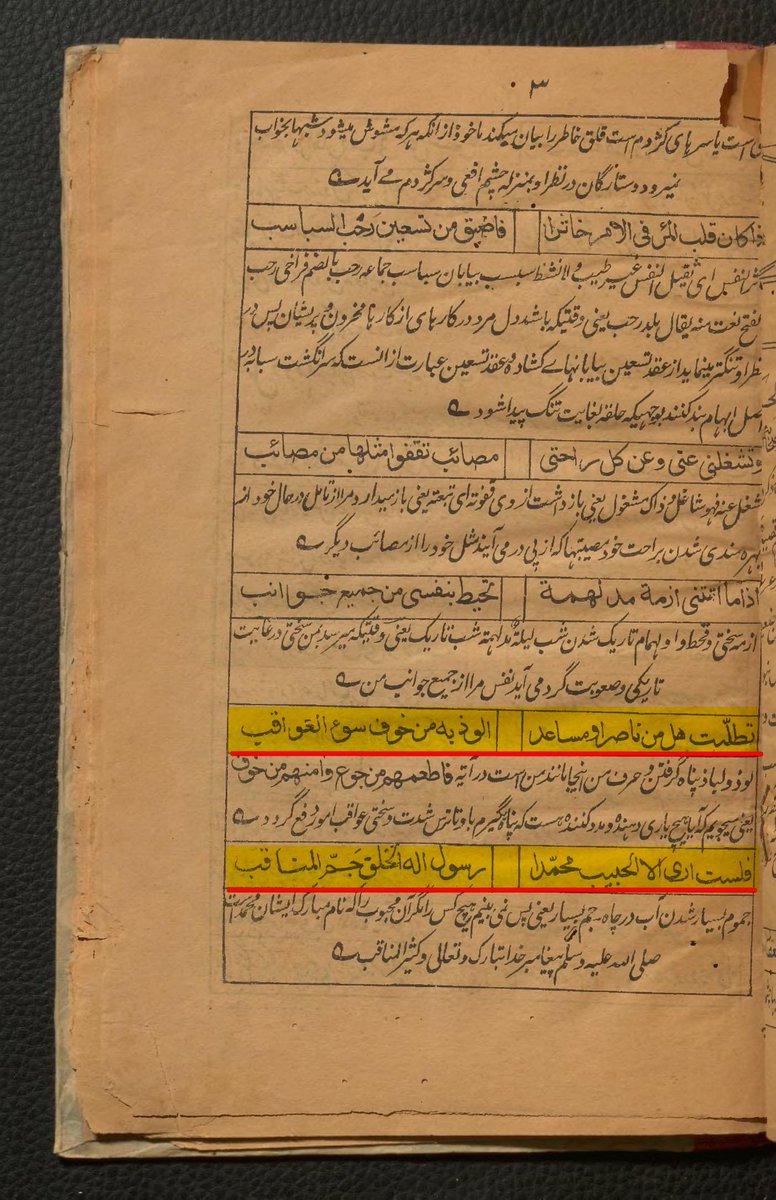 ۳
است یا سرهای کژدم است قلق خاطر را بیان میکند ماخوذ از انکه هر که مشوش میشود شبها بخواب
نمیرود و ستارگان در نظر او بمنزله چشم افعی و سر کژدم مے آید
اذا کان قلب المرء فی الامر خاثرا فاضیق من تسعین رحب السباسب
خثر النفس ای ثقیل النفس غیر طیب ولا نشط سبسب بیابان سباسب جماعه رحب بالضم فراخی رحب
بفتح نعت منه یقال بلد رحب یعنی وقتیکه باشد دل مرد در کاری از کارها محزون و پریشان پس در
نظر او تنگتر مینماید از عقد تسعین بیابانهاے کشاده و عقد تسعین عبارت از انست که سر انگشت سبابه در
اصل ابهام بند کنند بوجهیکه حلقه بغایت تنگ پیدا شود
وتشغلنی عنی وعن کل راحتی مصائب تقفوا مثلها من مصائب
شغل عنه فهو شاغل و ذاک مشغول یعنی باز داشت از وی قفوته ای تبعته یعنی باز میدارد مرا از تامل در حال خود از
بهره مندی شدن براحت خود مصیبتها که از پی در می آیند مثل خود را از مصائب دیگر
اذا ما اتتنی ازمة مدلهمة تحیط بنفسی من جمیع جوانب
ازمه سختی و قحط و ادلهمام تاریک شدن شب لیلة مدلهمة شب تاریک یعنی وقتیکه میرسد بمن سختی در غایت
تاریکی و صعوبت گرد می آید نفس مرا از جمیع جوانب من
تطلّبت هل من ناصر او مساعد الوذ به من خوف سوء العواقب
لوذ و لیاذ پناه گرفتن و حرف من اینجا مانند من است در آیه فاطعمهم من جوع وامنهم من خوف
یعنی میجویم که آیا هیچ یاری دهنده و مدد کننده هست که پناه گیرم باو تا ترس شدت و سختی عواقب امور رفع گردد
فلست اری الا الحبیب محمدا رسول اله الخلق جمّ المناقب
جموم بسیار شدن آب در چاه جم بسیار یعنی پس نمی بینم هیچ کس را مگر آن محبوب را که نام مبارک ایشان محمد است
صلی الله علیه وسلم پیغامبر خدا تبارک وتعالی و کثیر المناقب